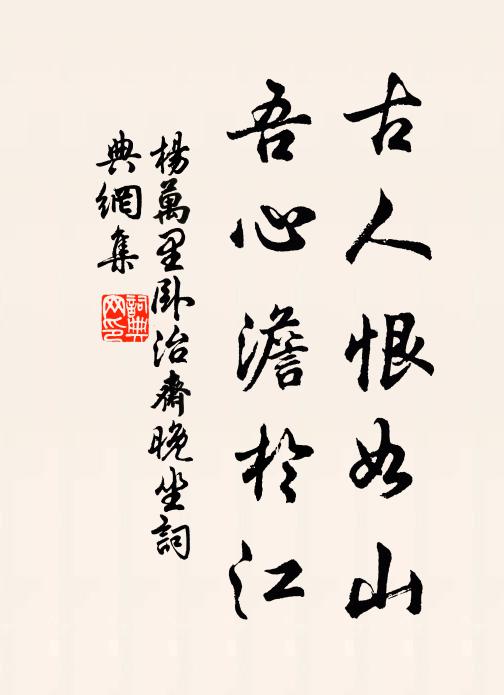 古人恨如山
吾心澹於江
楊萬里臥治齋晚坐詞
典網集
詞典
网印